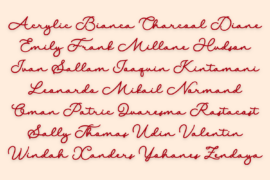 Acrylic Bianca Charcoal Diane
Emily Frank Millane Hudson
Ivan Sallam Joaquin Kintamani
Leonardo Mikail Normand
Oman Patric Quaresma Rastacost
Sally Thomas Udin Valentin
Windah Xanders Yohanes Zendaya